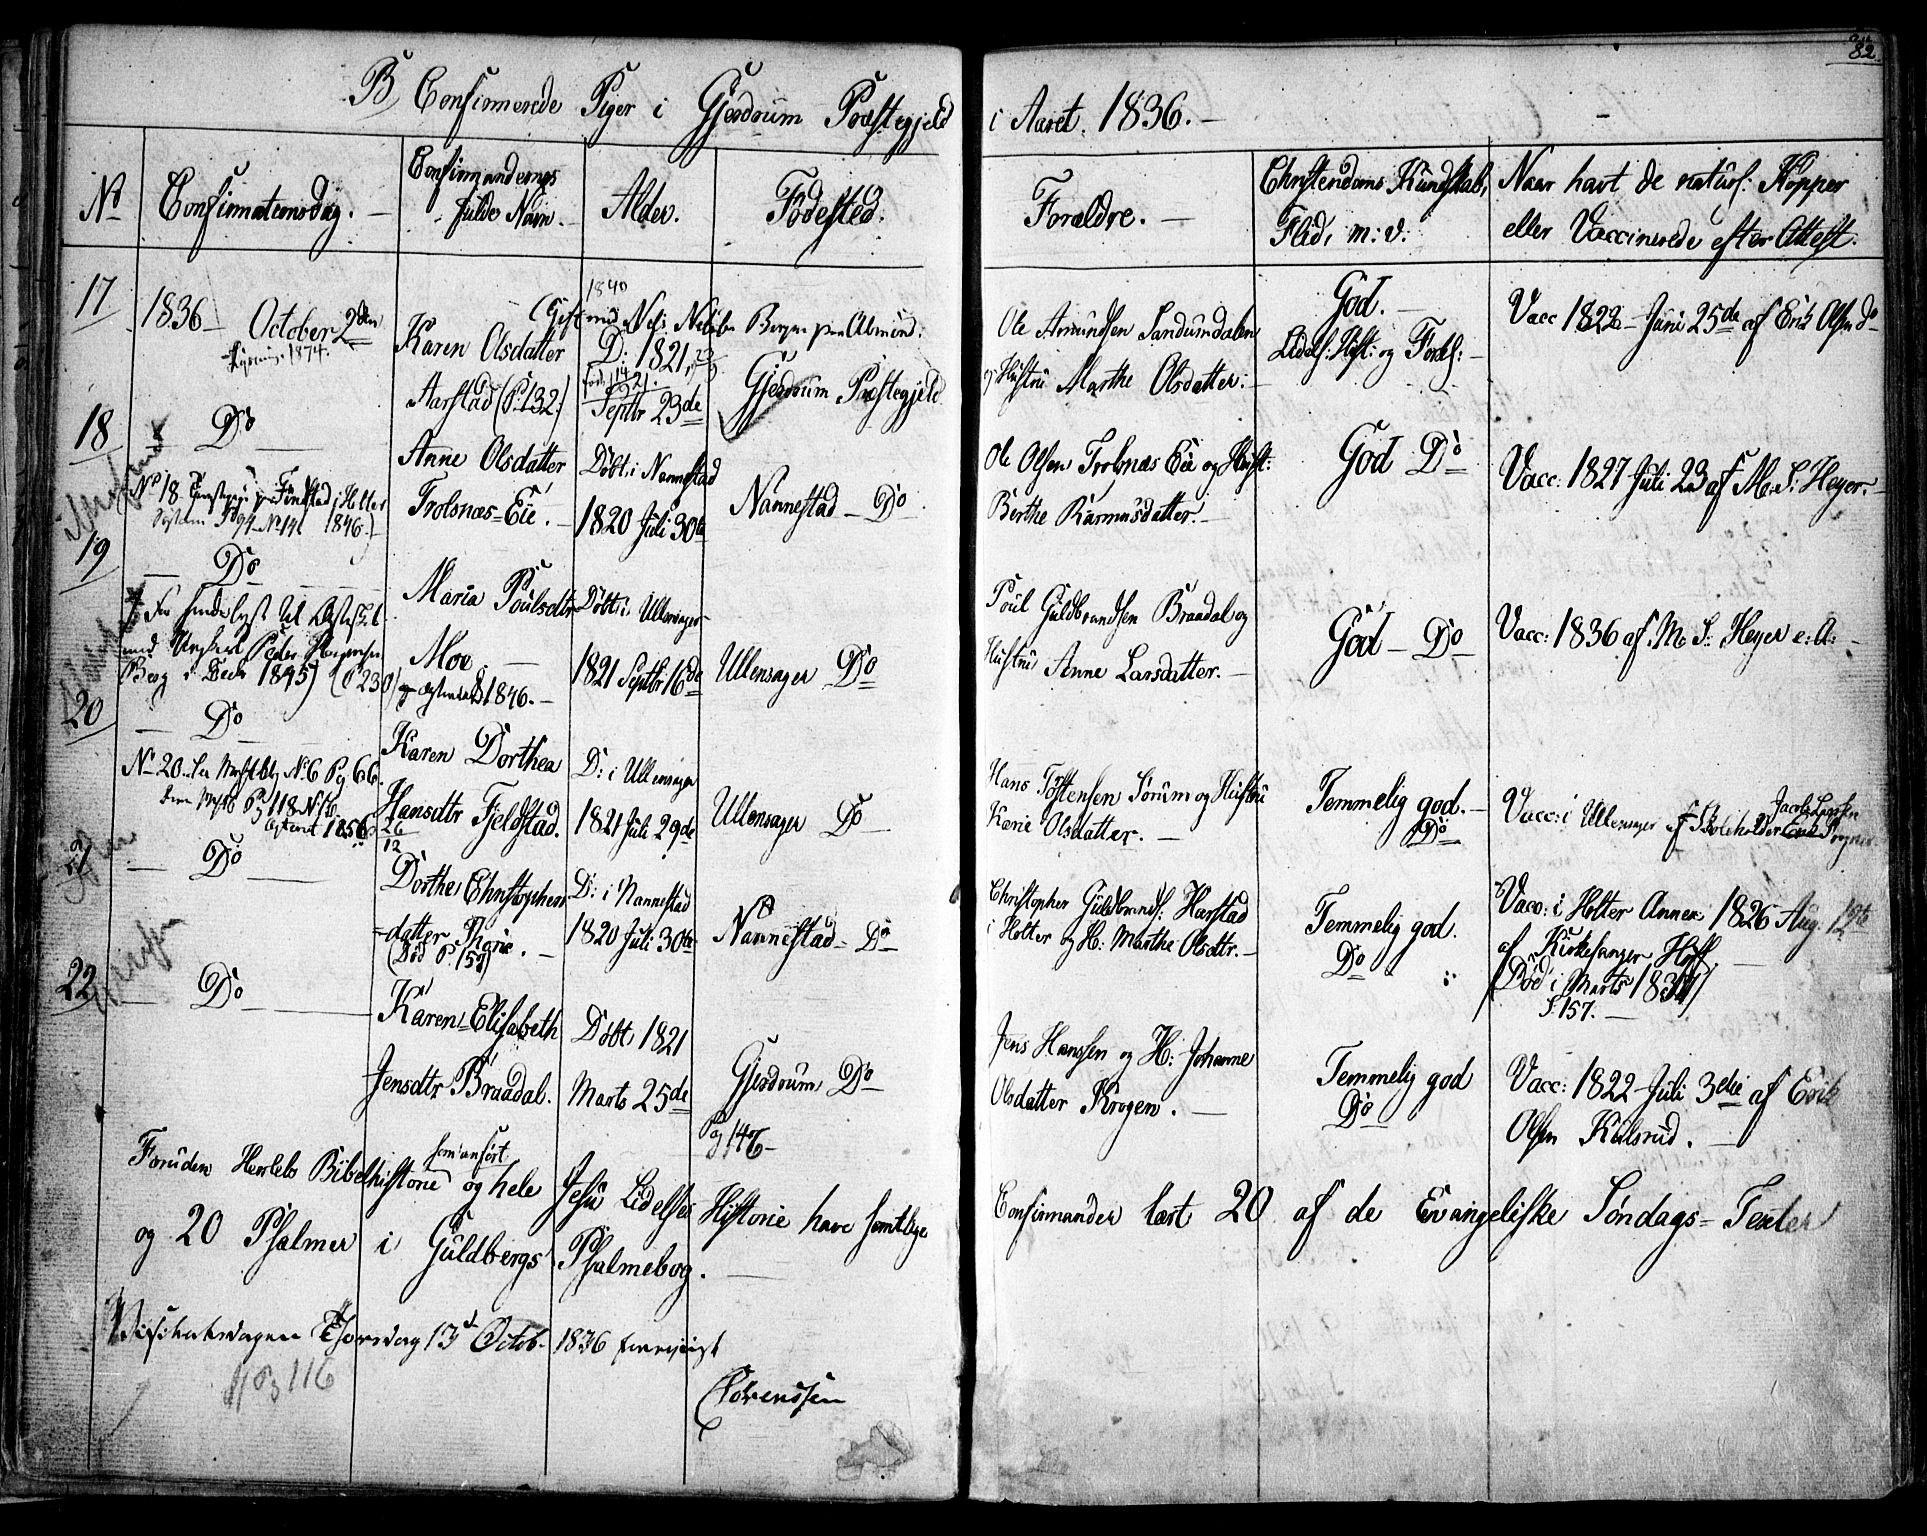 82.
B, Confirmerede Piger i Gjerdrum Præstegjeld
i Aaret. 1836.-
No
Confirmationsdag.
Confirmandernes
fulde Navn
Alder.
Fødested.
Forældre.
Christendoms Kundskab,
Flid, m: v:
Naar havt de naturl: Kopper
eller Vaccinerede efter Attest.
17
1836- October 2den
1874.
1840
Gift med Nels
Karen Olsdatter
Aarstad (P. 132.)
D: 1821, 23/9
Septbr 23de
Gjerdrum Præstegjeld
Ole Amundsen Sandumdalen
og Hustru Marthe Olsdatter:
God.-
Lidels: Hist: og Fork: -
Vacc 1822 - Juni 25de af Erik Olsen
18
Do
No 18 i Holter
No 14 1846.)
Anne Olsdatter
Trolsnæs-Eie.
Døbt: i Nannestad
1820 Juli 30te
Nannestad - Do
Ole Olsen Trolsnæs Eie og Hust:
Berthe Rasmusdatter.-
God Do
Vacc: 1827 Juli 23 af M. S: Heyer.-
19
Do
For hende lyst til Ægteskab
med Ungkarl Peder
Berg i Decbr 1845) (P 230)
Maria Poulsdtr
Moe
1846.-
Døbt: i Ullensager-
1821 Septbr 16de
Ullensager Do
Poul Guldbrandsen Braadal og
Hustru Anne Larsdatter.-
God - Do
Vacc: 1836 af. M. S: Heyer e: A: -
20
Do
No 20. No 6 Pg 66.
Pg 118 No 16
1856
Karen Dorthea
Hansdtr Fjeldstad.
26/12
D: i Ullensager
1821 Juli 29de
Ullensager Do
Hans Tostensen Sørum og Hustru
Karie Olsdatter. -
Temmelig god.-
Do
Vacc: i Ullensager af Skoleholder Jacob Larsen
21
Do
Dorthe Christophers
-datter Kari. -
(Død P. 157)
D: i Nannestad
1820 Juli 30te
Nannestad - Do
Christopher Guldbrands: Harstad
i Holter og H: Marthe Olsdtr.-
Temmelig god.
Do
Vacc: i Holter Annex 1826 Aug: 12te
af Kirkesanger Hoff.
(Død i Marts 1837)
S. 157. -
22
Do
Karen Elisabeth
Jensdtr Braadal.
Døbt 1821
Marts 25de
Gjerdrum Do
Pag 146-
Jens Hansen og H: Johanne
Olsdatter Krogen. -
Temmelig god
Do
Vacc: 1822 - Juli 3die af Erik
Olsen Kulsrud. -
Foruden Herslebs Bibelhistorie som anført og hele Jesu Lidelses Historie have samtlige
Confirmander læst 20 af de Evangeliske Søndags-Texter
og 20 Psalmer i Guldbergs Psalmebog.
Visitatsdagen Thorsdag 13de Octob. 1836 foreviist
Sørenssen
Pg 116